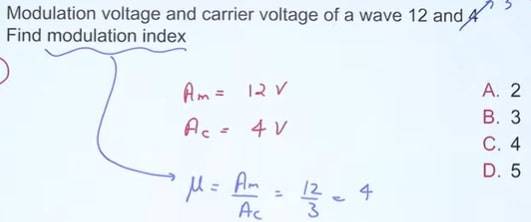 Modulation voltage and carrier voltage of a wave 12 and 4 3
Find modulation index
Am = 12 V
Ac = 4 V
μ = Am/Ac = 12/3 = 4
A. 2
B. 3
C. 4
D. 5